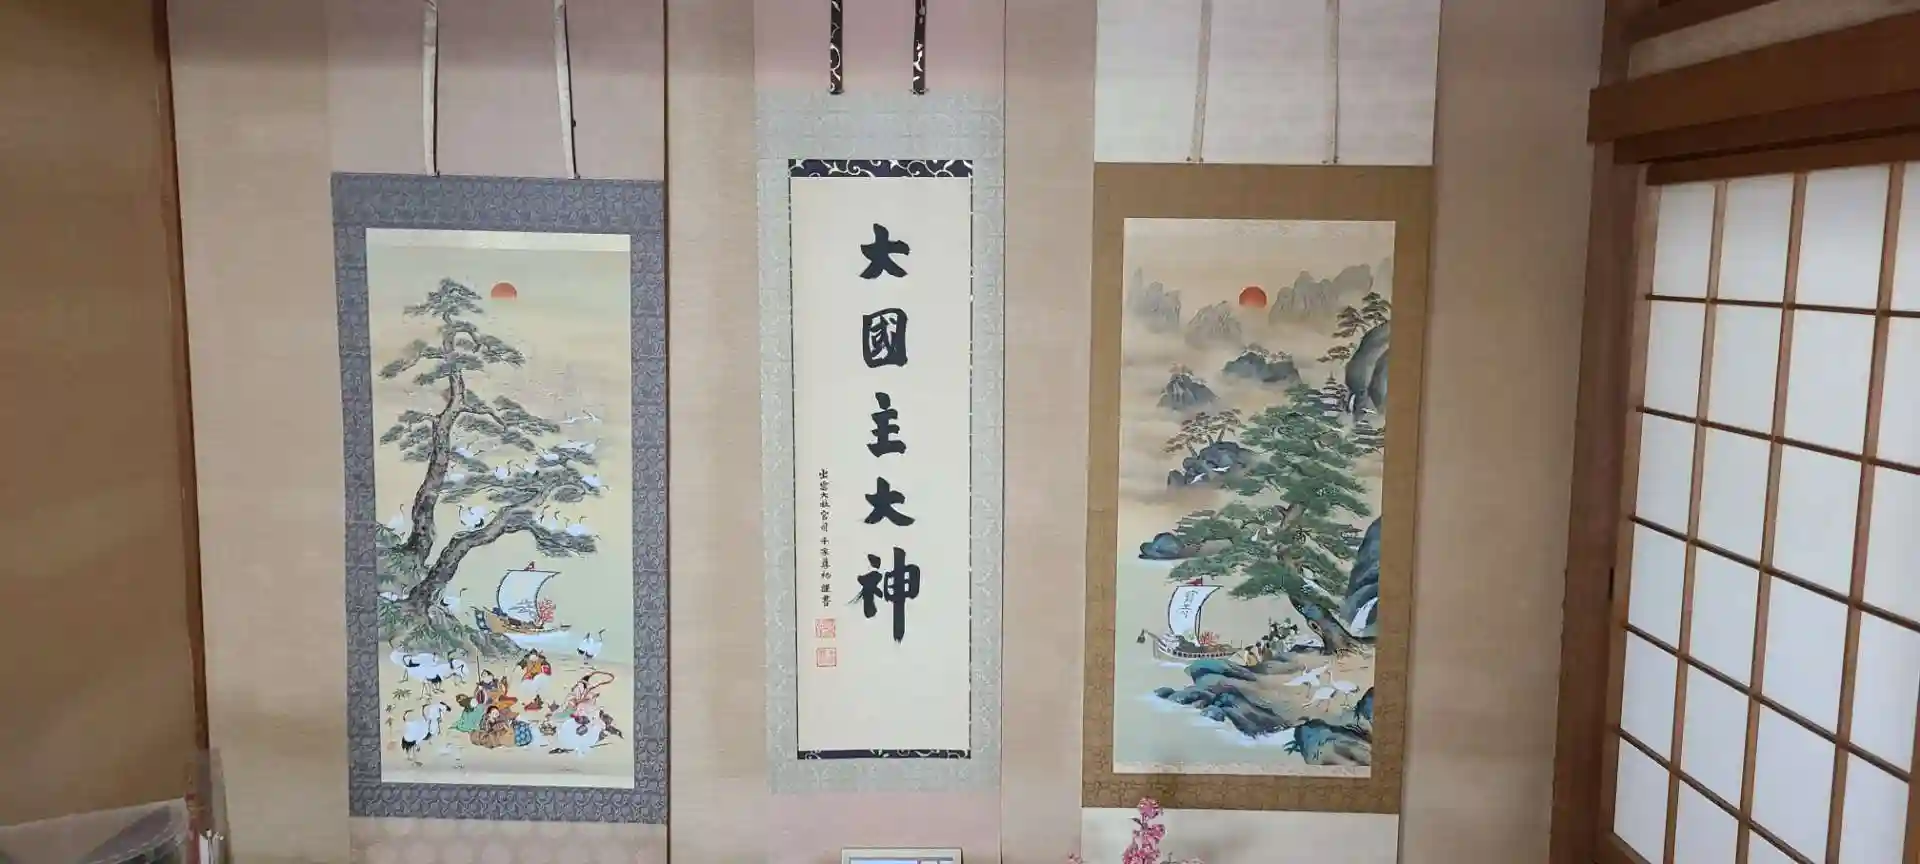 大國主大神
出雲大社宮司 千家尊祀 謹書